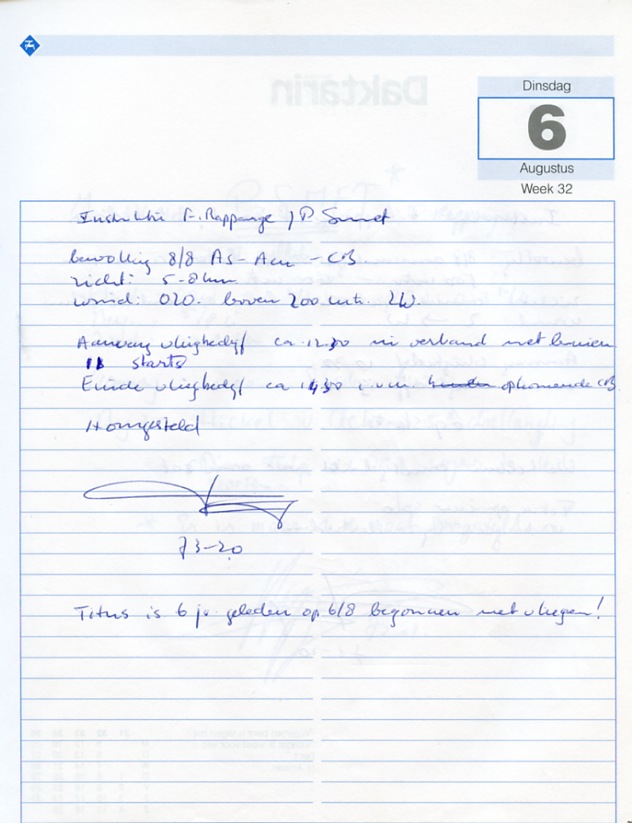 Dinsdag
6
Augustus
Week 32
F. Rappange / P
bewolking 8/8 AS - Acu - CB.
zicht: 5-8 km
wind: 020. boven 200 mtr. ZW.
Aanvang vliegbedrijf ca 12.30 in verband met buien
11 starts
Einde vliegbedrijf ca 1430 i.v.m. opkomende CB.
73-20
Titus is 6 jr. geleden op 6/8 begonnen met vliegen!